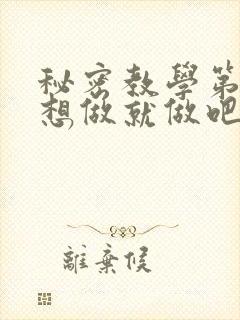 秘密教學第
想做就做吧
離棄候